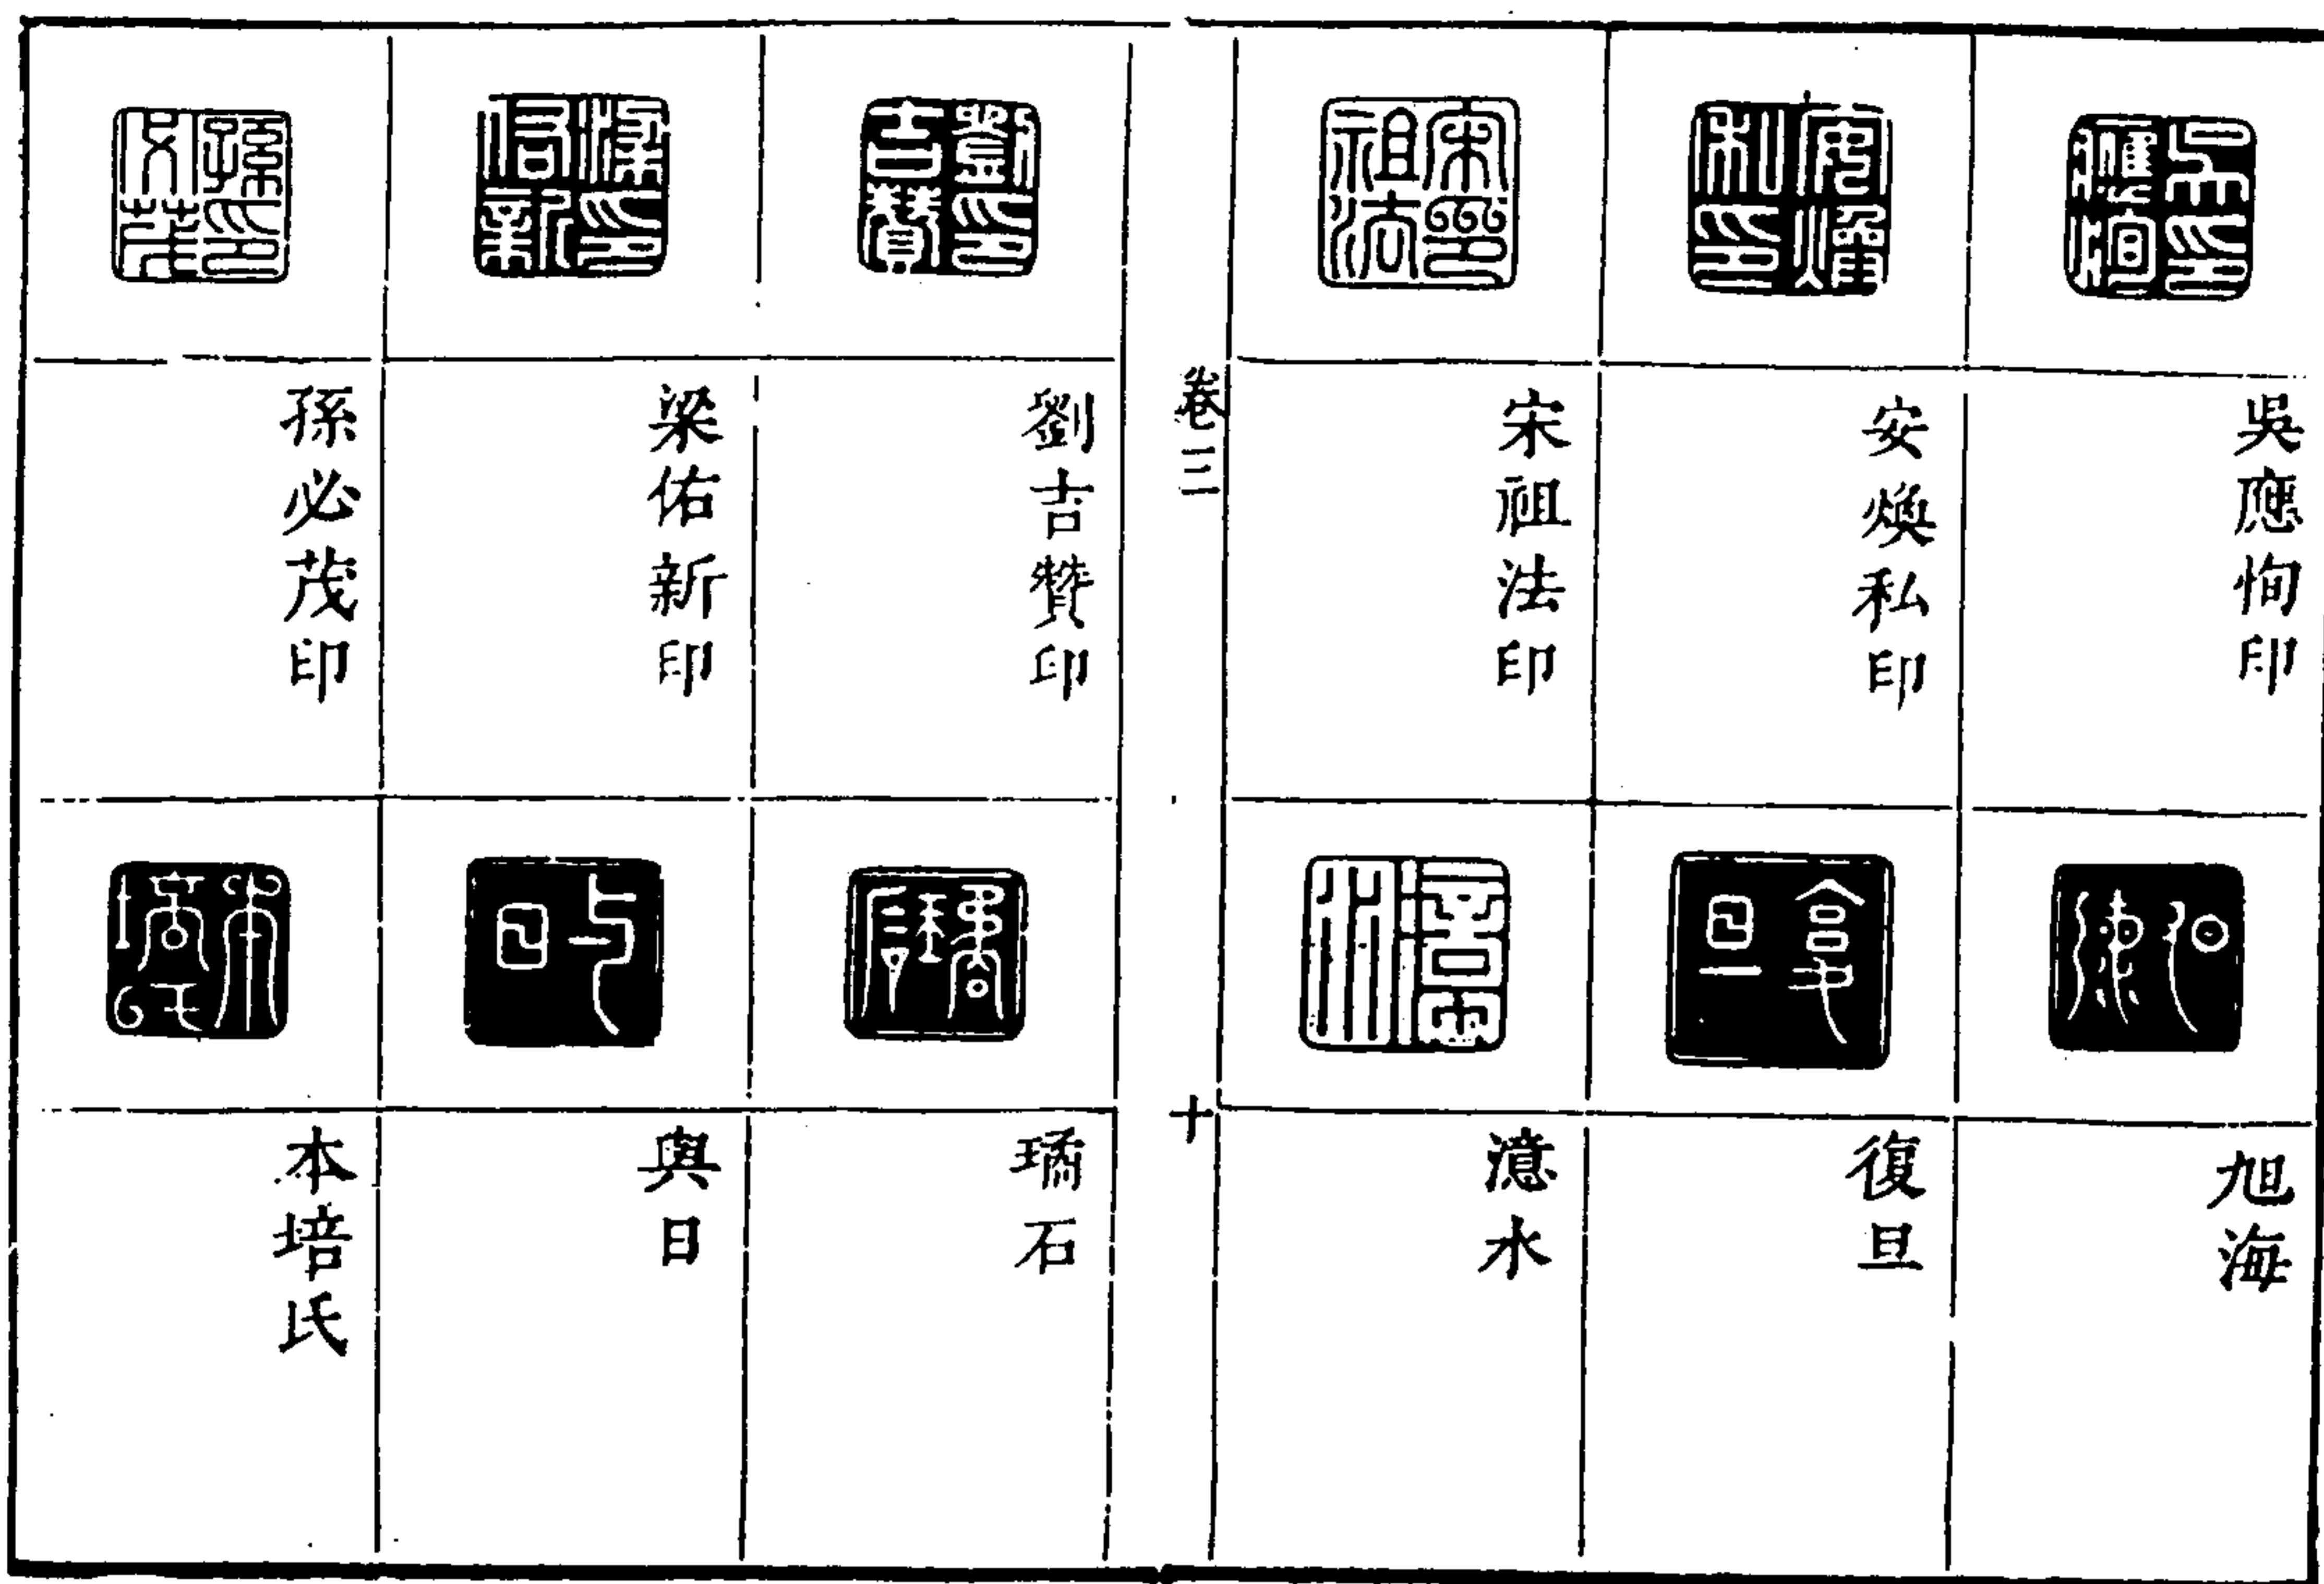 吳應恂印
旭海
安煥私印
復旦
宋祖法印
澺水
卷三
十
劉吉贊印
璚石
梁佑新印
與日
孫必茂印
本培氏